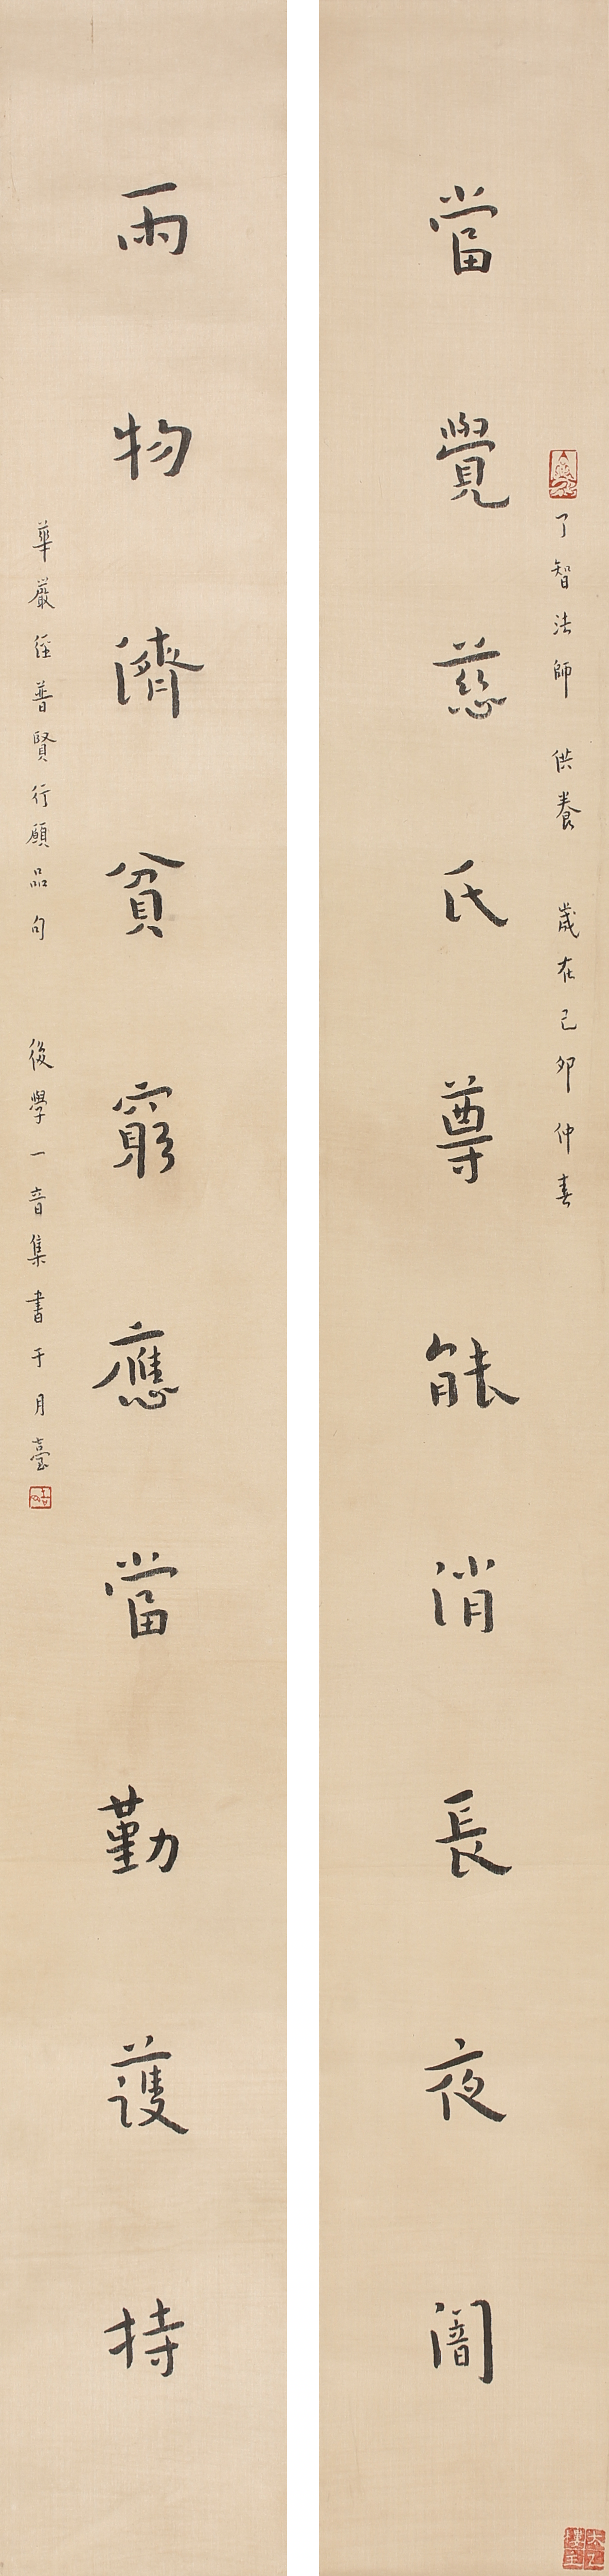 了智法師 供養 歲在己卯仲春
當覺慈氏尊能消長夜闇
雨物濟貧窮應當勤護持
華嚴經普賢行願品句 後學一音集書于月臺